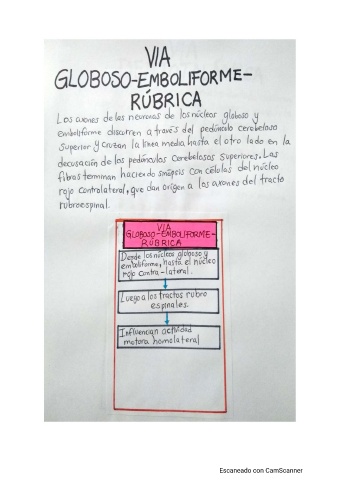 VIA
GLOBOSO-EMBOLIFORME-
RÚBRICA
Los axones de las neuronas de los núcleos globoso y
emboliforme discurren a través del pedúnculo cerebeloso
superior y cruzan la línea media hasta el otro lado en la
decusación de los pedúnculos cerebelosos superiores. Las
fibras terminan haciendo sinápsis con células del núcleo
rojo contralateral, que dan origen a los axones del tracto
rubroespinal.
VIA
GLOBOSO-EMBOLIFORME-
RÚBRICA
Desde los núcleos globoso y
emboliforme, hasta el núcleo
rojo contra-lateral.
Luego a los tractos rubro
espinales.
Influencian actividad
motora homolateral
Escaneado con CamScanner